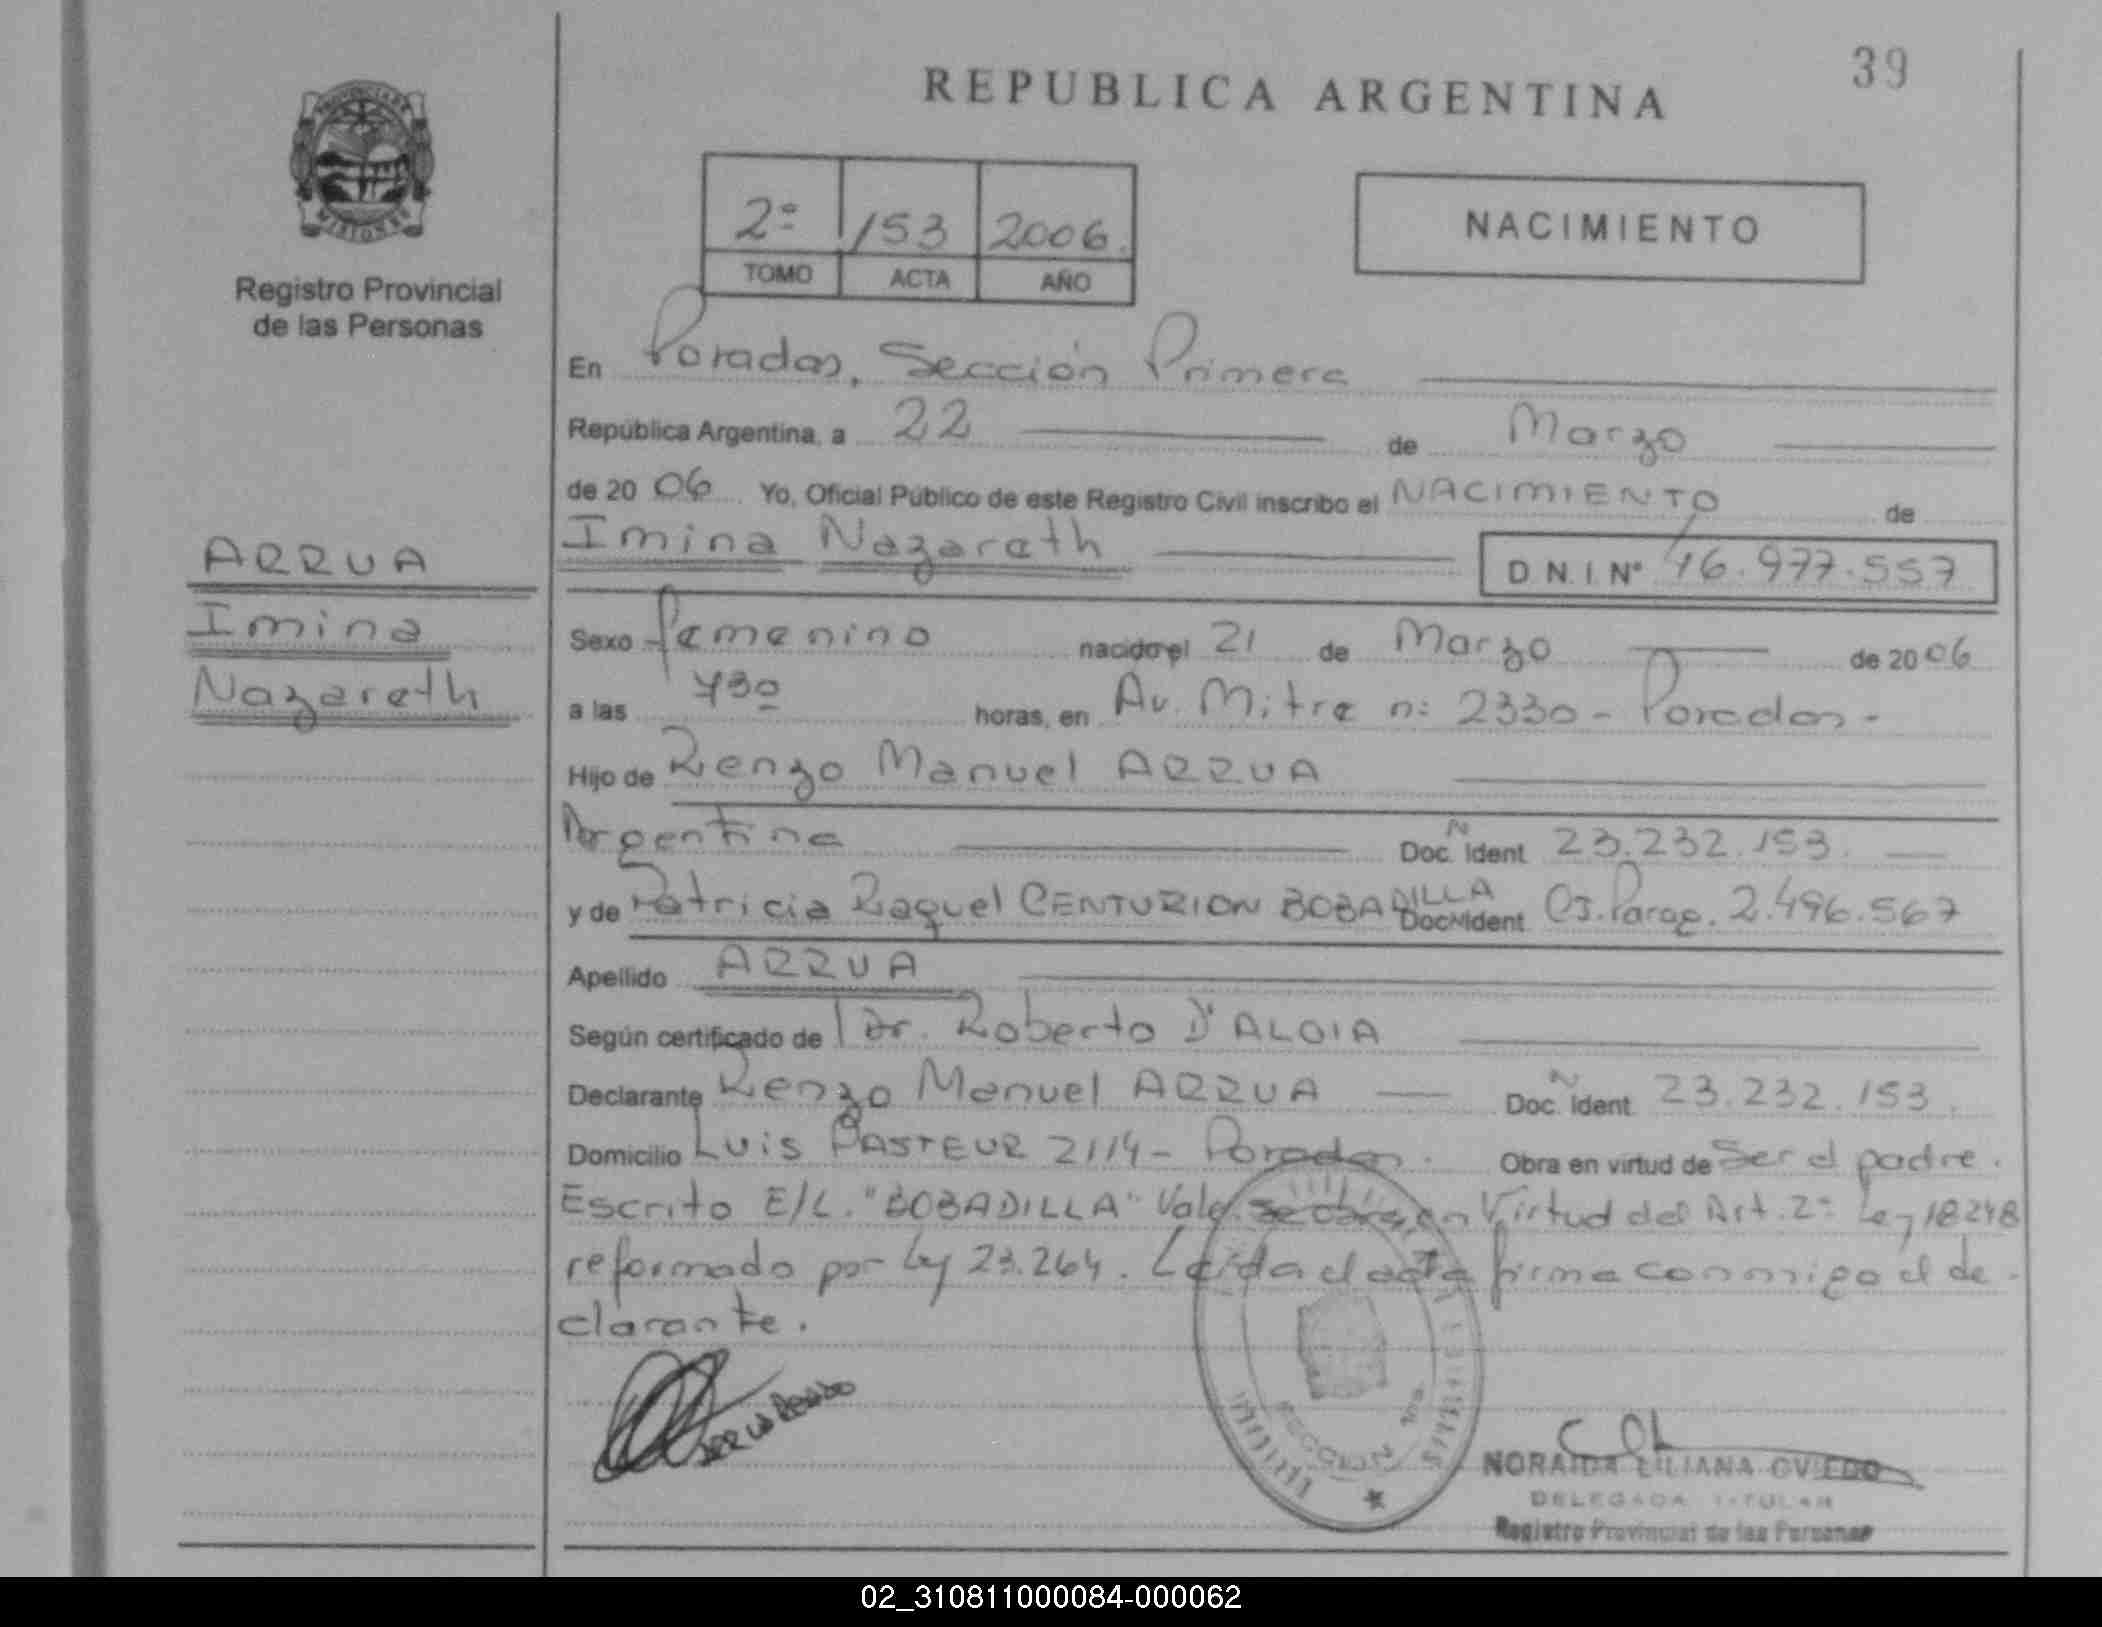 39
REPUBLICA ARGENTINA
PROVINCIA DE
MISIONES
Registro Provincial
de las Personas
2º 153 2006.
TOMO ACTA AÑO
NACIMIENTO
En Posadas, Sección Primera
República Argentina, a 22 de Marzo
de 20 06 Yo, Oficial Público de este Registro Civil inscribo el NACIMIENTO de
Imina Nazareth D N. I. Nº 46.977.557
ARRUA
Imina
Nazareth
Sexo femenino nacido el 21 de Marzo de 20 06
a las 430 horas, en Av. Mitre n: 2330 - Posadas -
Hijo de Renzo Manuel ARRUA
Argentina Doc. Ident. 23.232.153.
y de Patricia Raquel CENTURION BOBADILLA Doc. Ident. CI. Parag. 2.496.567
Apellido ARRUA
Según certificado de Dr. Roberto D'ALOIA
Declarante Renzo Manuel ARRUA Doc. Ident. 23.232.153.
Domicilio Luis PASTEUR 2114 - Posadas. Obra en virtud de Ser el padre.
Escrito E/L. "BOBADILLA" Vale. en Virtud del Art. 2º Ley 18248
reformado por Ley 23.264. Leida el acta firma conmigo el de-
clarante.
ARRUA RENZO
SECCION 1ra.
NORAIDA LILIANA OVIEDO
DELEGADA TITULAR
Registro Provincial de las Personas
02_310811000084-000062